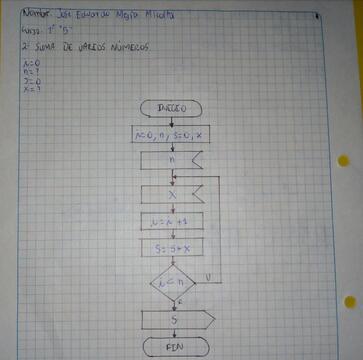 Nombre: José Eduardo Mejía Micolta
Curso: 1° "B"
2. SUMA DE VARIOS NÚMEROS
i=0
n=?
S=0
x=?
INICIO
i=0, n, s=0, x
n
X
i=i+1
S=S+X
i<n
V
F
S
FIN